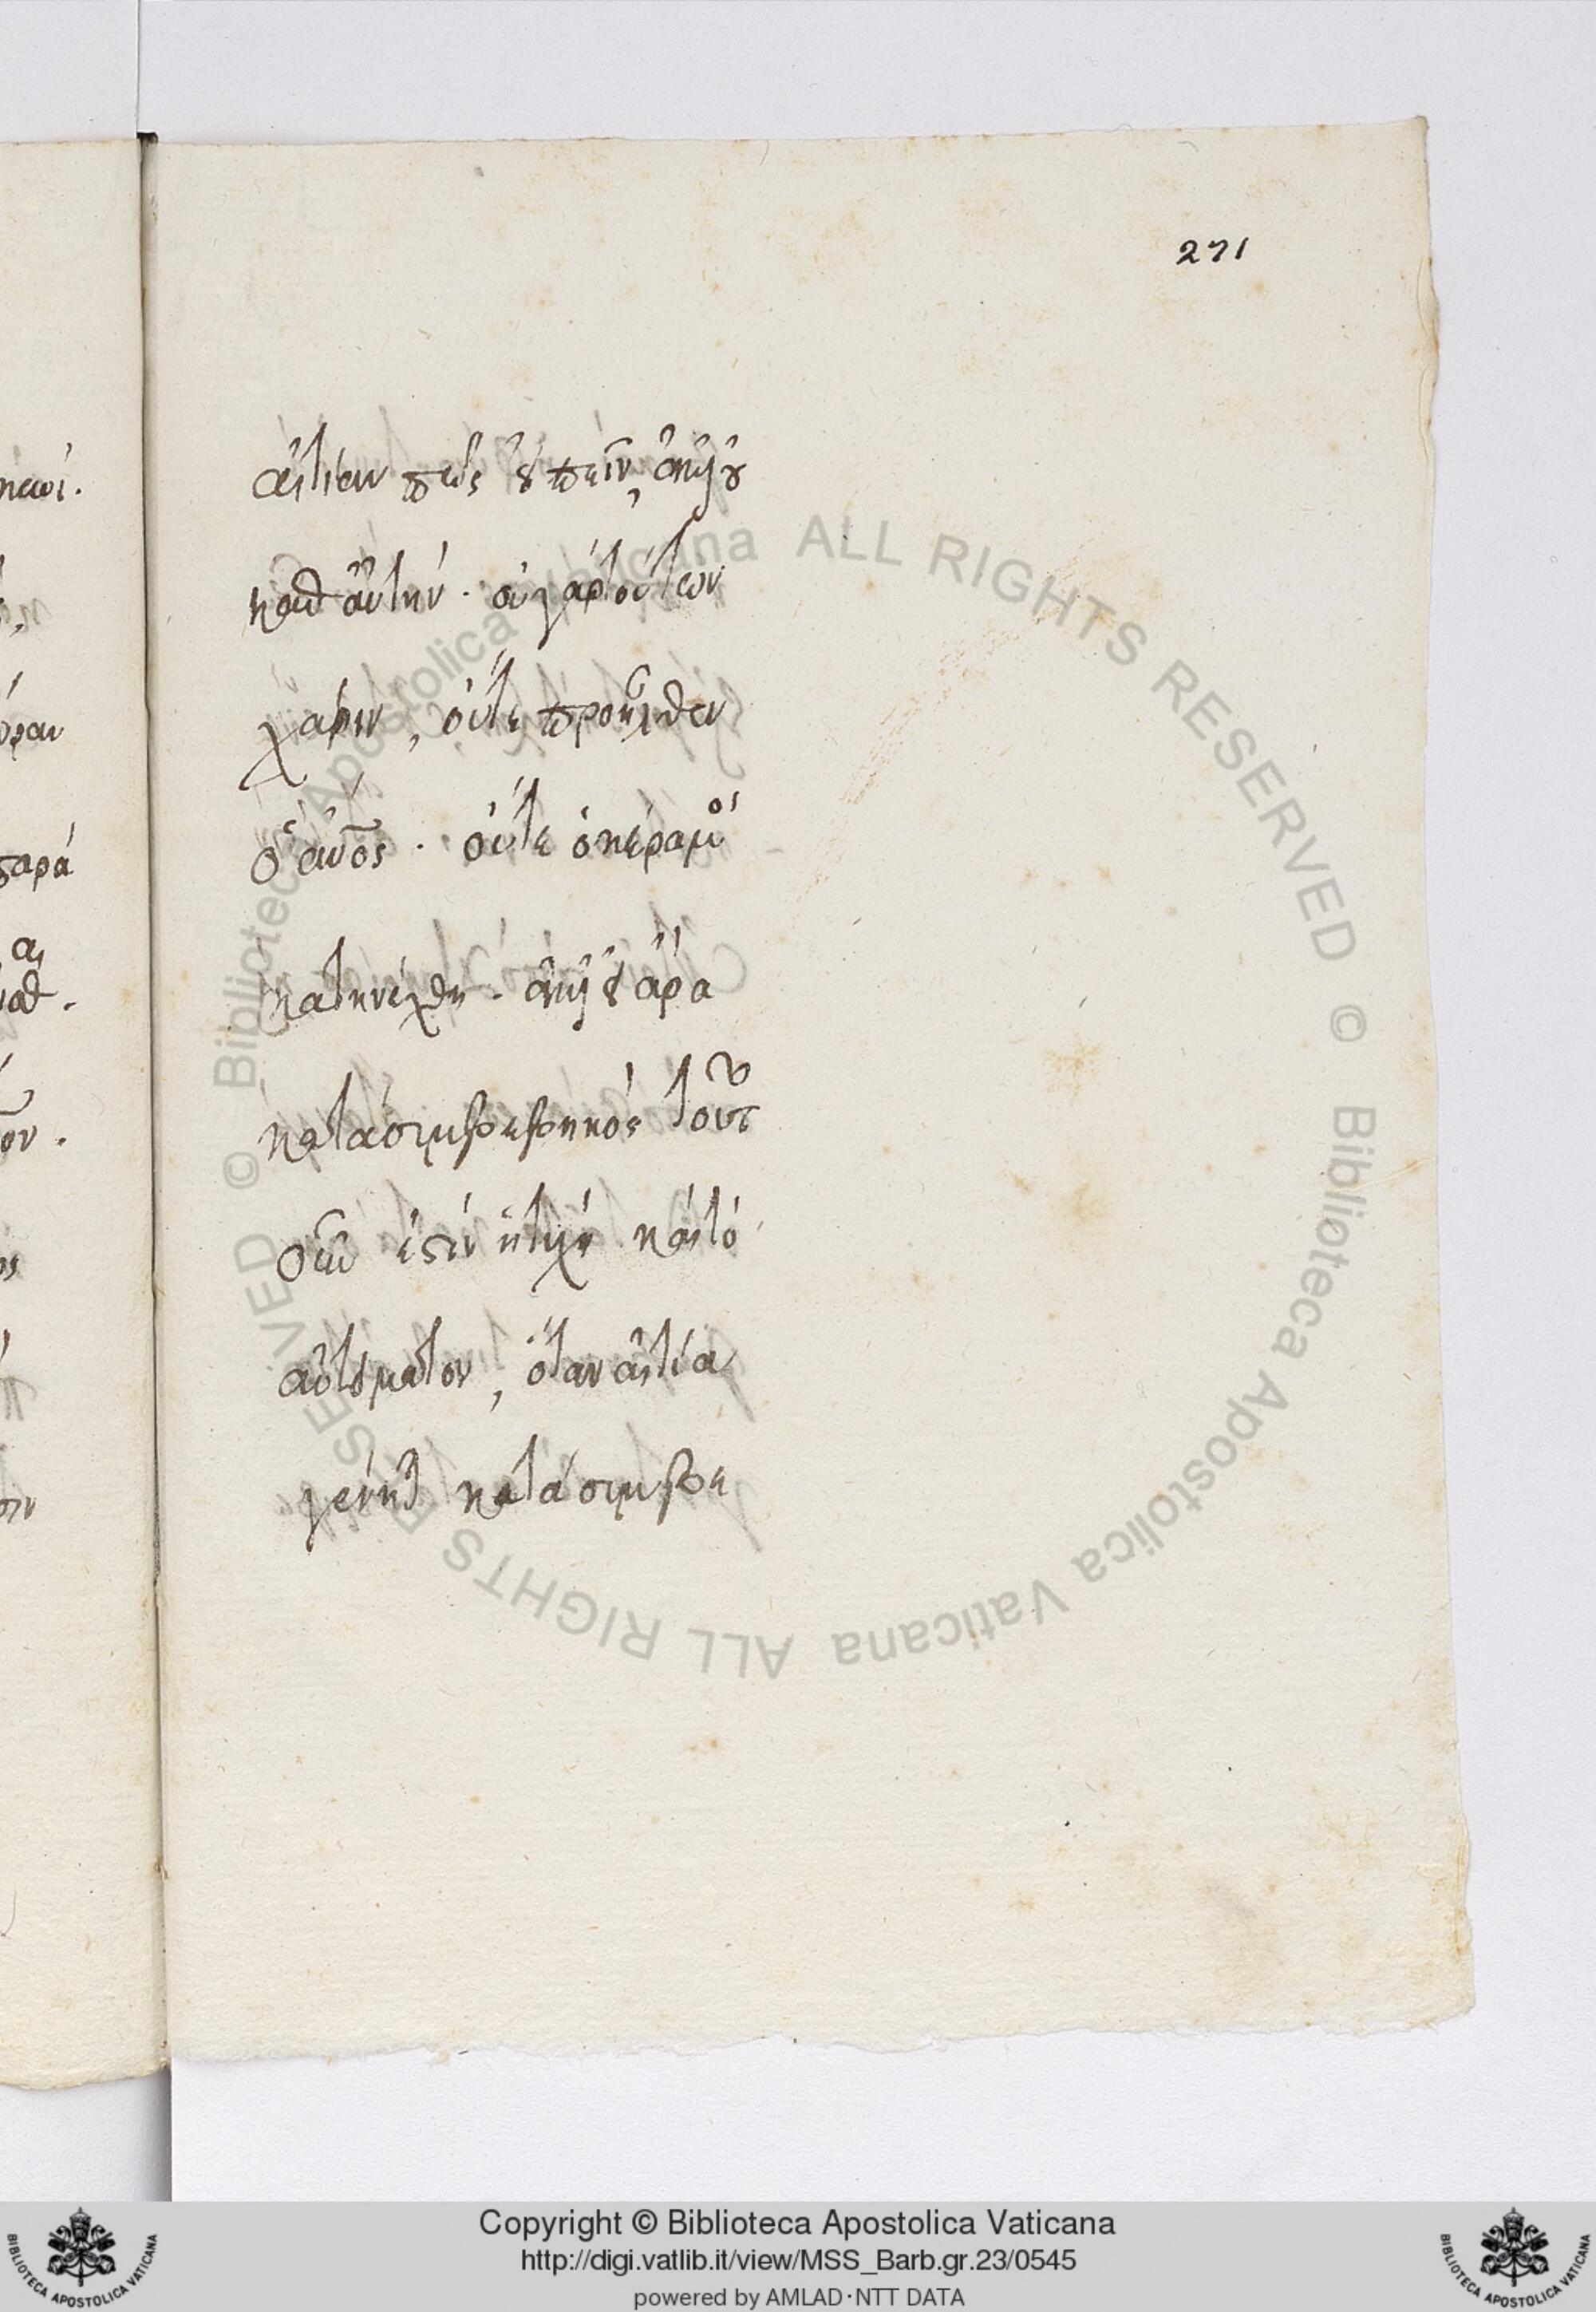 271
αἴτιον πως εἰπεῖν, ἀλλ' οὐ
καθ αὑτήν. οὐ γὰρ τούτων
χάριν, οὔτε προῆλθεν
ὁ ἀνος. οὔτε ὁ κέραμος
κατηνέχθη. ἄρα
κατὰ συμβεβηκός τούτου
οὖν ἐστιν ἡ τύχη καὶ τὸ
αὐτόματον, ὅταν αἰτία
γένηται κατὰ συμβε
παρά
© Biblioteca Apostolica Vaticana ALL RIGHTS RESERVED © Biblioteca Apostolica Vaticana ALL RIGHTS RESERVED
Copyright © Biblioteca Apostolica Vaticana
http://digi.vatlib.it/view/MSS_Barb.gr.23/0545
powered by AMLAD·NTT DATA
BIBLIOTECA APOSTOLICA VATICANA
BIBLIOTECA APOSTOLICA VATICANA